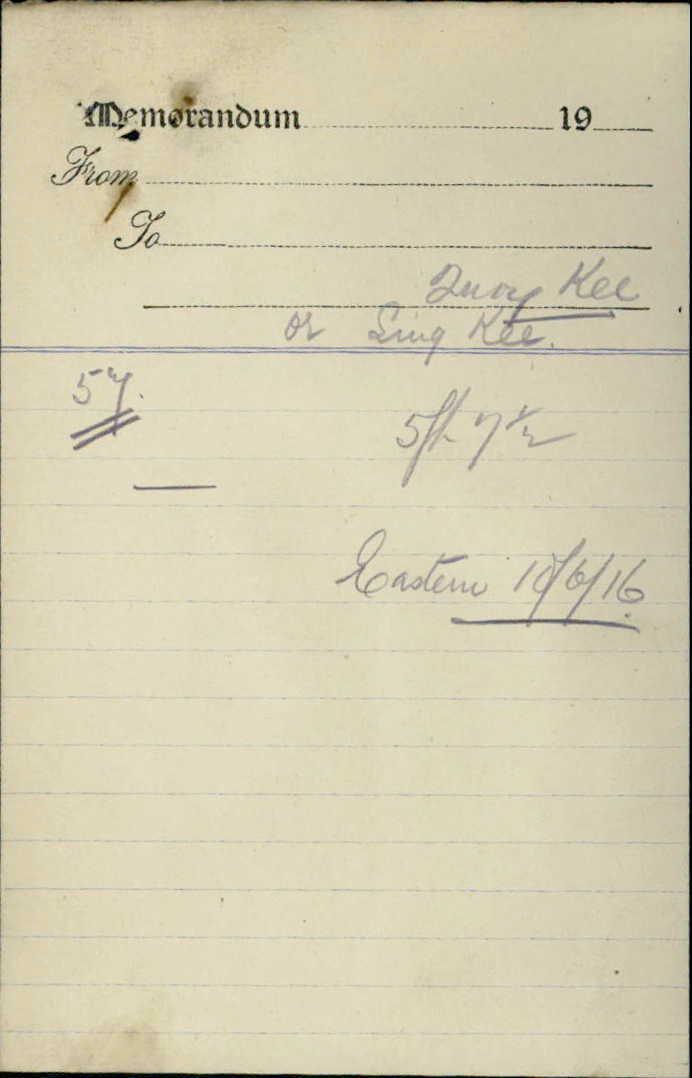 Memorandum 19
From
To
Quoy Kee
or Sing Kee.
57.
5ft 7 1/2
Eastern 10/6/16